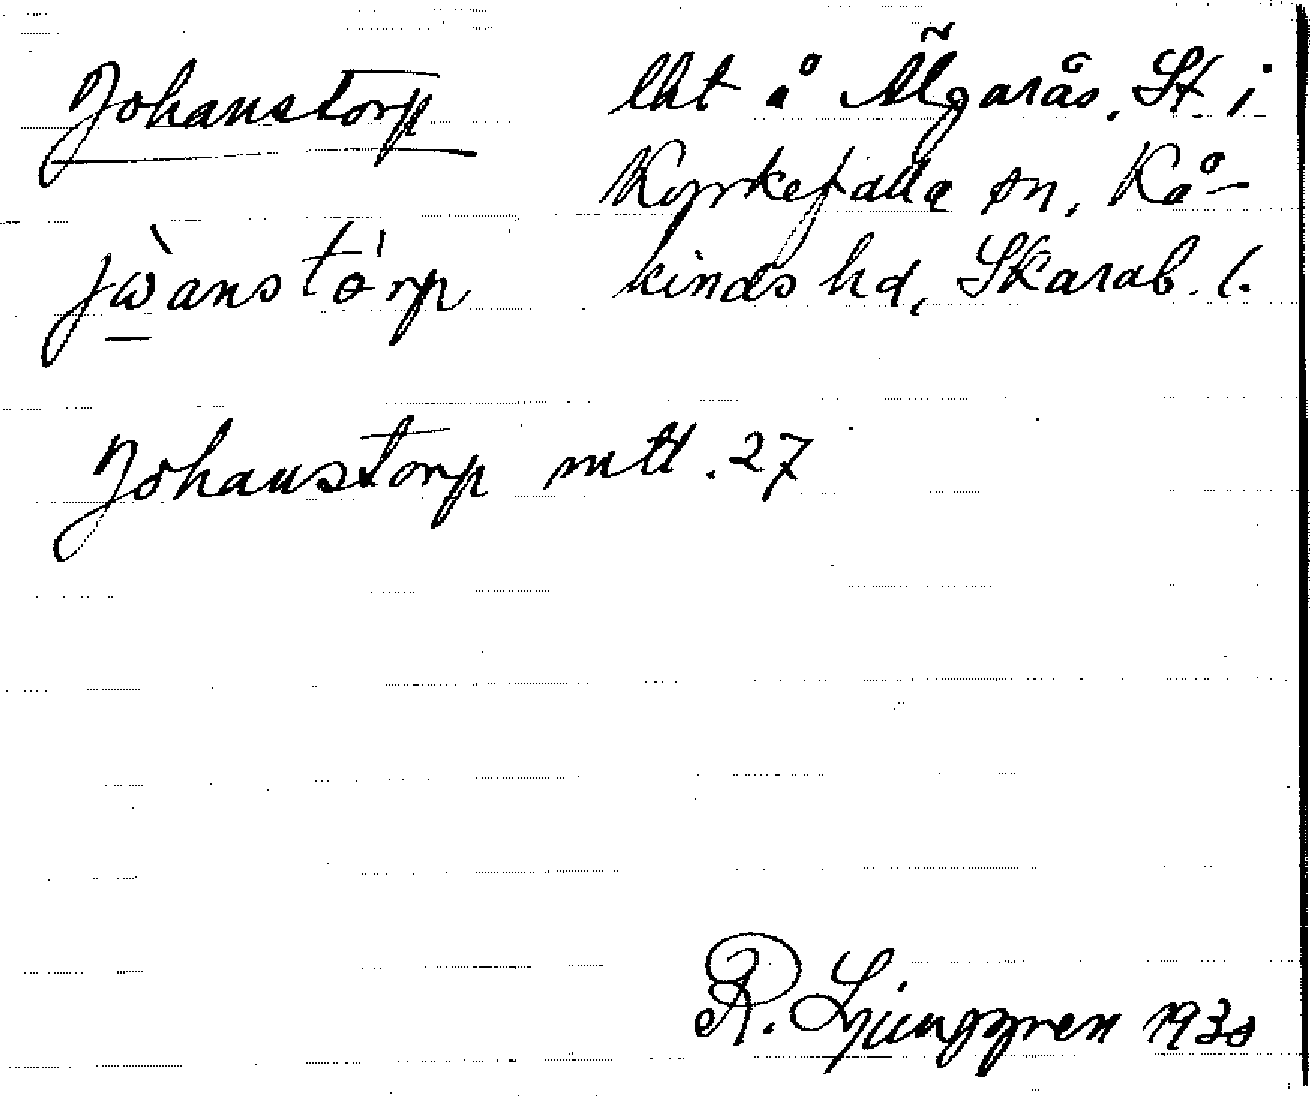 Johanstorp
lht å Älgarås, St. i
Korskefalla sn, Kå-
kinds hd, Skarab. l.
jẁanstórp
Johanstorp mtl. 27
R. Ljunggren 1930